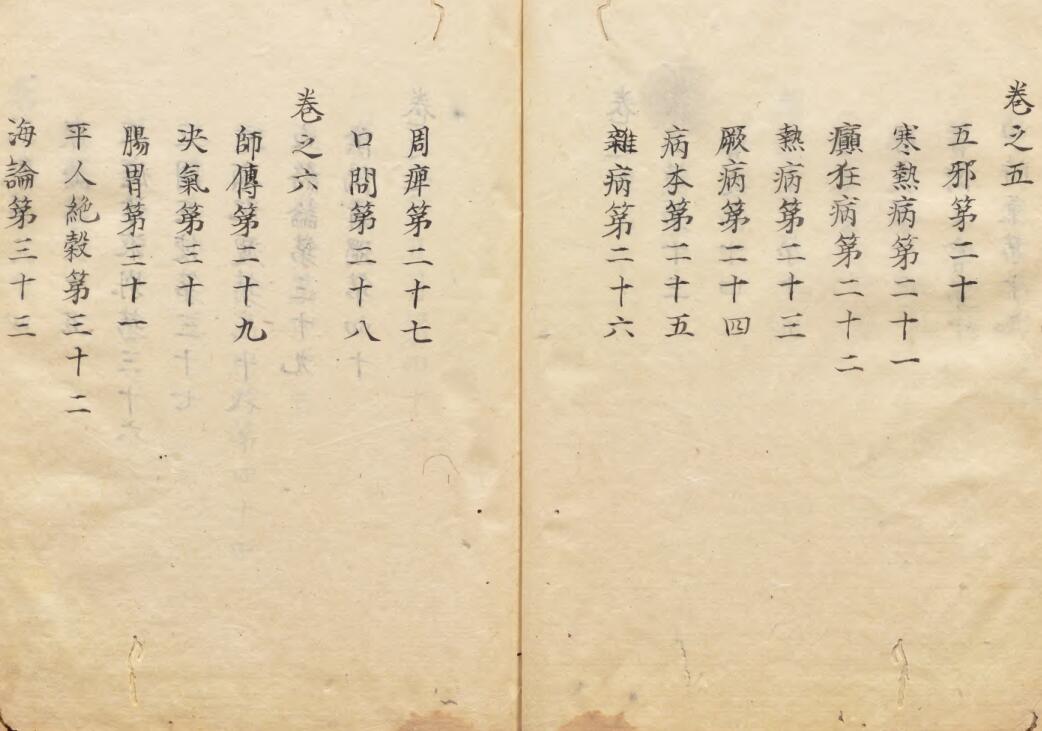 卷之五
五邪第二十
寒熱病第二十一
癲狂病第二十二
熱病第二十三
厥病第二十四
病本第二十五
雜病第二十六
周痺第二十七
口問第二十八
卷之六
師傳第二十九
決氣第三十
腸胃第三十一
平人絶穀第三十二
海論第三十三